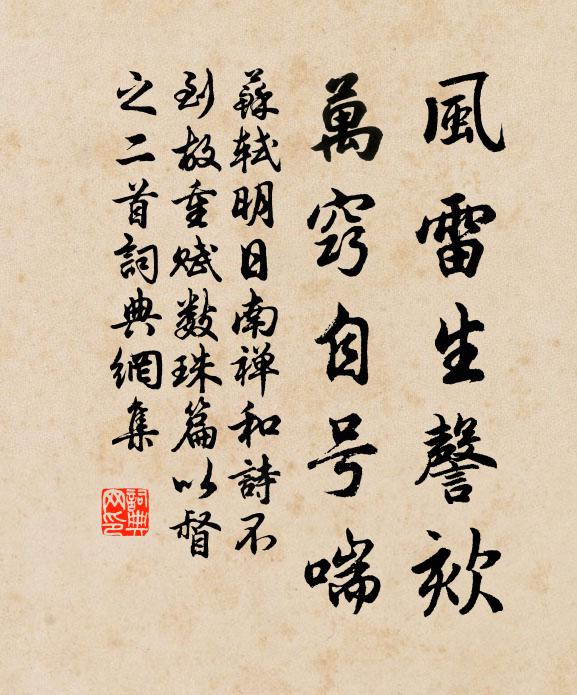 風雷生謦欬
萬窍自号喘
蘇軾明日南禅和詩不
到故重赋數珠篇以督
之二首詞典網集
詞典
网印